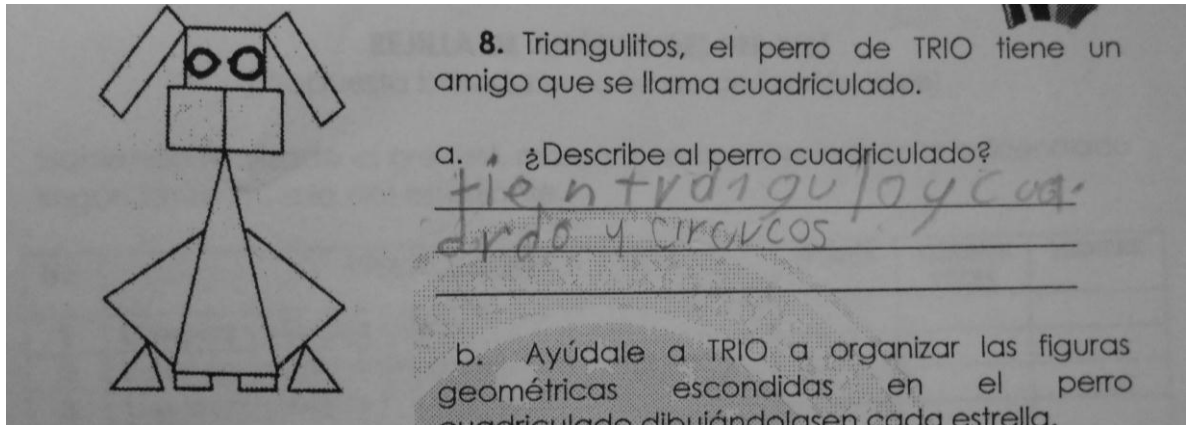 8. Triangulitos, el perro de TRIO tiene un
amigo que se llama cuadriculado.
a. ¿Describe al perro cuadriculado?
tien trdiguloycua-
drdo y circucos
b. Ayúdale a TRIO a organizar las figuras
geométricas escondidas en el perro
cuadriculado dibujándolasen cada estrella.